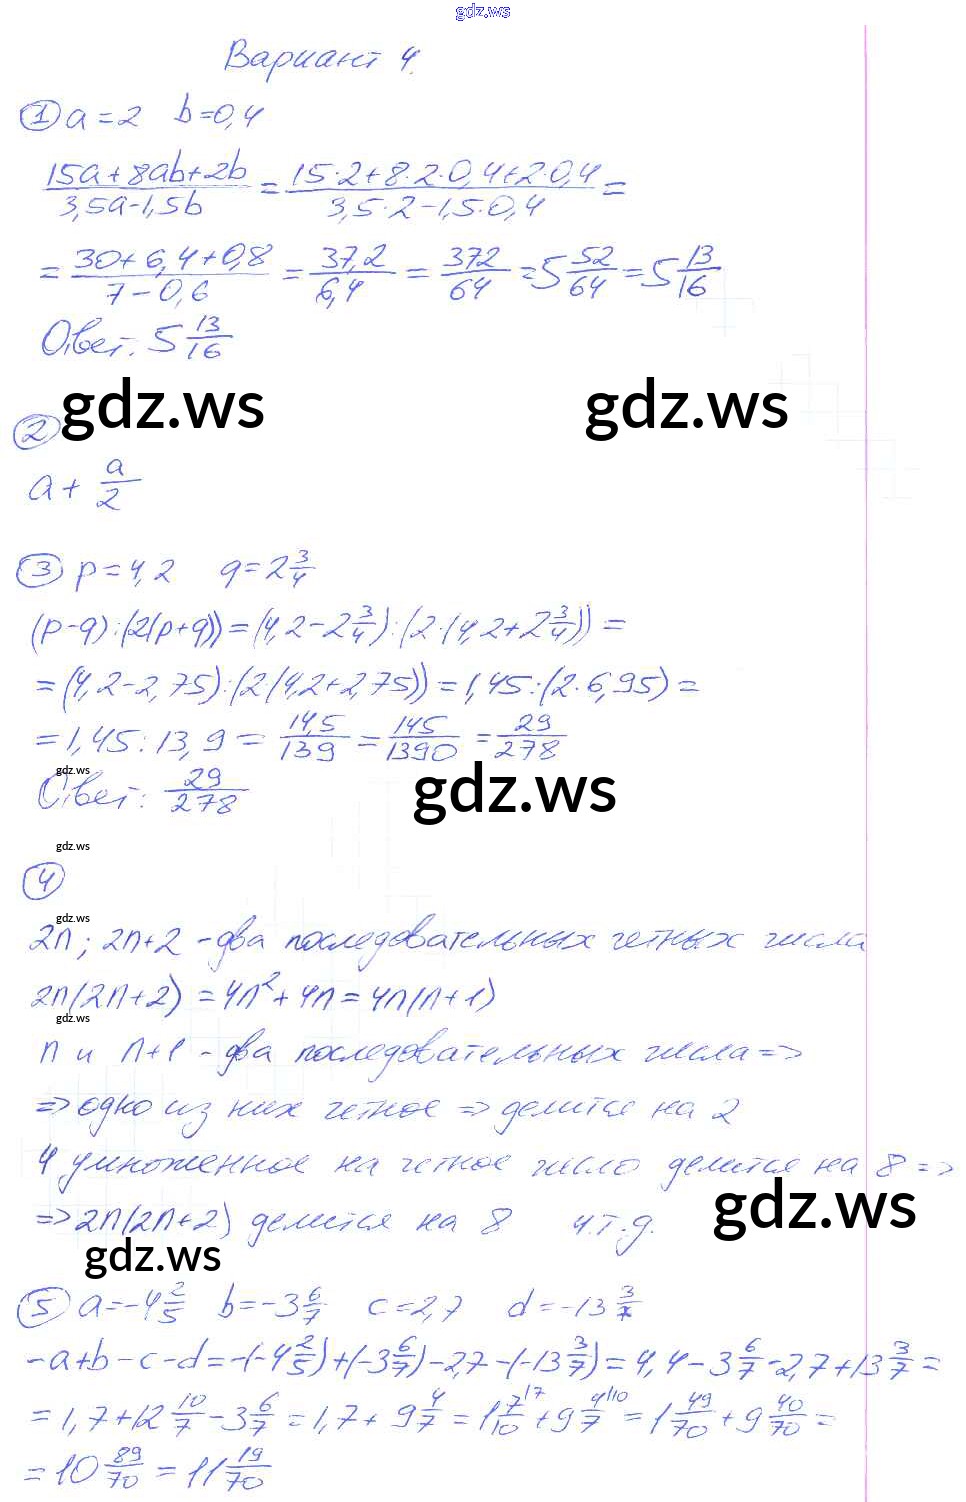 gdz.ws
Вариант 4.
① a = 2 b = 0,4
(15a + 8ab + 2b)/(3,5a - 1,5b) = (15·2 + 8·2·0,4 + 2·0,4)/(3,5·2 - 1,5·0,4) =
= (30 + 6,4 + 0,8)/(7 - 0,6) = 37,2/6,4 = 372/64 = 5 52/64 = 5 13/16
Ответ: 5 13/16
gdz.ws gdz.ws
②
a + a/2
③ p = 4,2 q = 2 3/4
(p - q) : (2(p + q)) = (4,2 - 2 3/4) : (2·(4,2 + 2 3/4)) =
= (4,2 - 2,75) : (2·(4,2 + 2,75)) = 1,45 : (2·6,95) =
= 1,45 : 13,9 = 14,5/139 = 145/1390 = 29/278
gdz.ws
Ответ: 29/278
gdz.ws
gdz.ws
④
gdz.ws
2n; 2n+2 - два последовательных четных числа
2n(2n+2) = 4n² + 4n = 4n(n+1)
gdz.ws
n и n+1 - два последовательных числа =>
=> одно из них четное => делится на 2
4 умноженное на четное число делится на 8 =>
=> 2n(2n+2) делится на 8 ч.т.д.
gdz.ws
gdz.ws
⑤ a = -4 2/5 b = -3 6/7 c = 2,7 d = -13 3/7
-a + b - c - d = -(-4 2/5) + (-3 6/7) - 2,7 - (-13 3/7) = 4,4 - 3 6/7 - 2,7 + 13 3/7 =
= 1,7 + 12 10/7 - 3 6/7 = 1,7 + 9 4/7 = 1 7/10 \7 + 9 4/7 \10 = 1 49/70 + 9 40/70 =
= 10 89/70 = 11 19/70